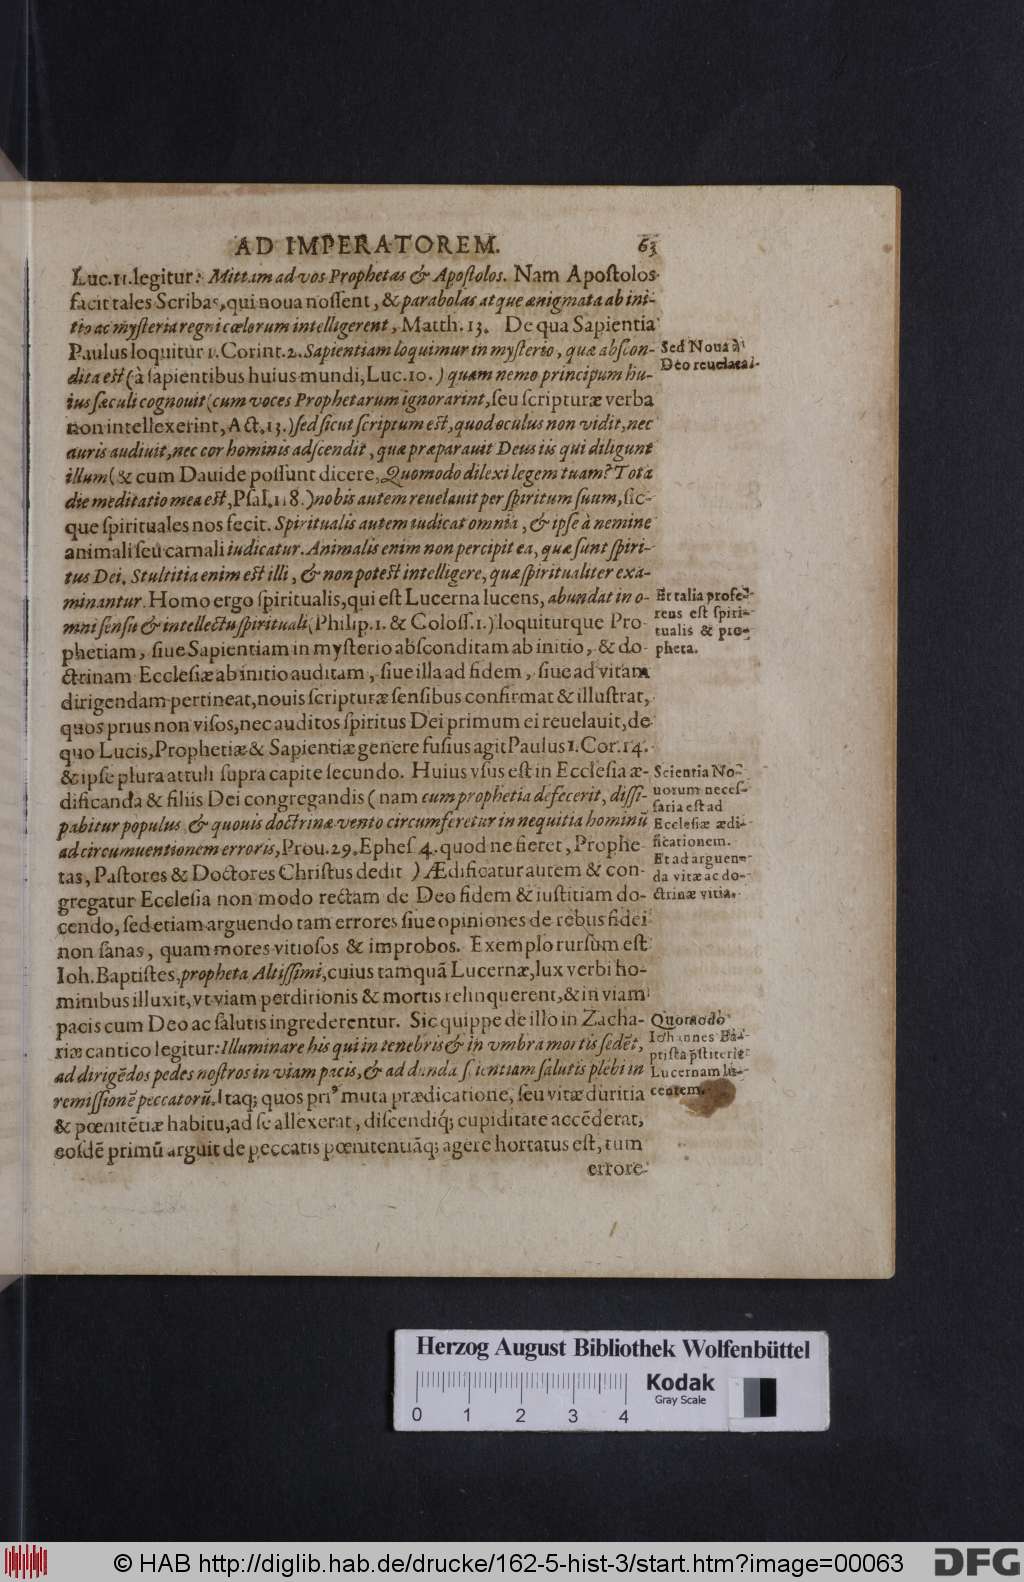 AD IMPERATOREM. 63
Luc.11.legitur: Mittam ad vos Prophetas & Apoſtolos. Nam Apoſtolos
facit tales Scribas, qui noua noſſent, & parabolas atque ænigmata ab ini-
tio ac myſteria regni cœlorum intelligerent, Matth. 13. De qua Sapientia
Paulus loquitur 1. Corint. 2. Sapientiam loquimur in myſterio, quæ abſcon-
dita eſt (à ſapientibus huius mundi, Luc. 10.) quam nemo principum hu-
ius ſæculi cognouit (cum voces Prophetarum ignorarint, ſeu ſcripturæ verba
non intellexerint, Act. 13.) ſed ſicut ſcriptum eſt, quod oculus non vidit, nec
auris audiuit, nec cor hominis adſcendit, quæ præparauit Deus iis qui diligunt
illum (& cum Dauide poſſunt dicere, Quomodo dilexi legem tuam? Tota
die meditatio mea eſt, Pſal. 118.) nobis autem reuelauit per ſpiritum ſuum, ſic-
que ſpirituales nos fecit. Spiritualis autem iudicat omnia, & ipſe à nemine
animali ſeu carnali iudicatur. Animalis enim non percipit ea, quæ ſunt ſpiri-
tus Dei. Stultitia enim eſt illi, & non poteſt intelligere, quæ ſpiritualiter exa-
minantur. Homo ergo ſpiritualis, qui eſt Lucerna lucens, abundat in o-
mni ſenſu & intellectu ſpirituali (Philip. 1. & Coloſſ. 1.) loquiturque Pro-
phetiam, ſiue Sapientiam in myſterio abſconditam ab initio, & do-
ctrinam Eccleſiæ ab initio auditam, ſiue illa ad fidem, ſiue ad vitam
dirigendam pertineat, nouis ſcripturæ ſenſibus confirmat & illuſtrat,
quos prius non viſos, nec auditos ſpiritus Dei primum ei reuelauit, de
quo Lucis, Prophetiæ & Sapientiæ genere fuſius agit Paulus 1. Cor. 14.
& ipſe plura attuli ſupra capite ſecundo. Huius vſus eſt in Eccleſia æ-
dificanda & filiis Dei congregandis (nam cum prophetia defecerit, diſſi-
pabitur populus, & quouis doctrinæ vento circumferetur in nequitia hominũ
ad circumuentionem erroris, Prou. 29. Epheſ 4. quod ne fieret, Prophe-
tas, Paſtores & Doctores Chriſtus dedit ) Ædificatur autem & con-
gregatur Eccleſia non modo rectam de Deo fidem & iuſtitiam do-
cendo, ſed etiam arguendo tam errores ſiue opiniones de rebus fidei
non ſanas, quam mores vitioſos & improbos. Exemplo rurſum eſt
Ioh. Baptiſtes, propheta Altiſſimi, cuius tamquã Lucernæ, lux verbi ho-
minibus illuxit, vt viam perditionis & mortis relinquerent, & in viam
pacis cum Deo ac ſalutis ingrederentur. Sic quippe de illo in Zacha-
riæ cantico legitur: Illuminare his qui in tenebris & in vmbra mortis ſedẽt,
ad dirigẽdos pedes noſtros in viam pacis, & ad dandã ſcientiam ſalutis plebi in
remiſſionẽ peccatorũ. Itaq; quos priꝰ muta prædicatione, ſeu vitæ duritia
& pœnitẽtiæ habitu, ad ſe allexerat, diſcendiq́; cupiditate accẽderat,
eoſdẽ primũ arguit de peccatis pœnitentiãq; agere hortatus eſt, tum
errore
Sed Noua à
Deo reuelata.
Et talia profe-
rens eſt ſpiri-
tualis & pro-
pheta.
Scientia No-
uorum neceſ-
ſaria eſt ad
Eccleſiæ ædi-
ficationem.
Et ad arguen-
da vitæ ac do-
ctrinæ vitia.
Quomodo
Iohannes Ba-
ptiſta pſtiterit
Lucernam lu-
centem.
Herzog August Bibliothek Wolfenbüttel
Kodak
Gray Scale
0 1 2 3 4
© HAB http://diglib.hab.de/drucke/162-5-hist-3/start.htm?image=00063
DFG